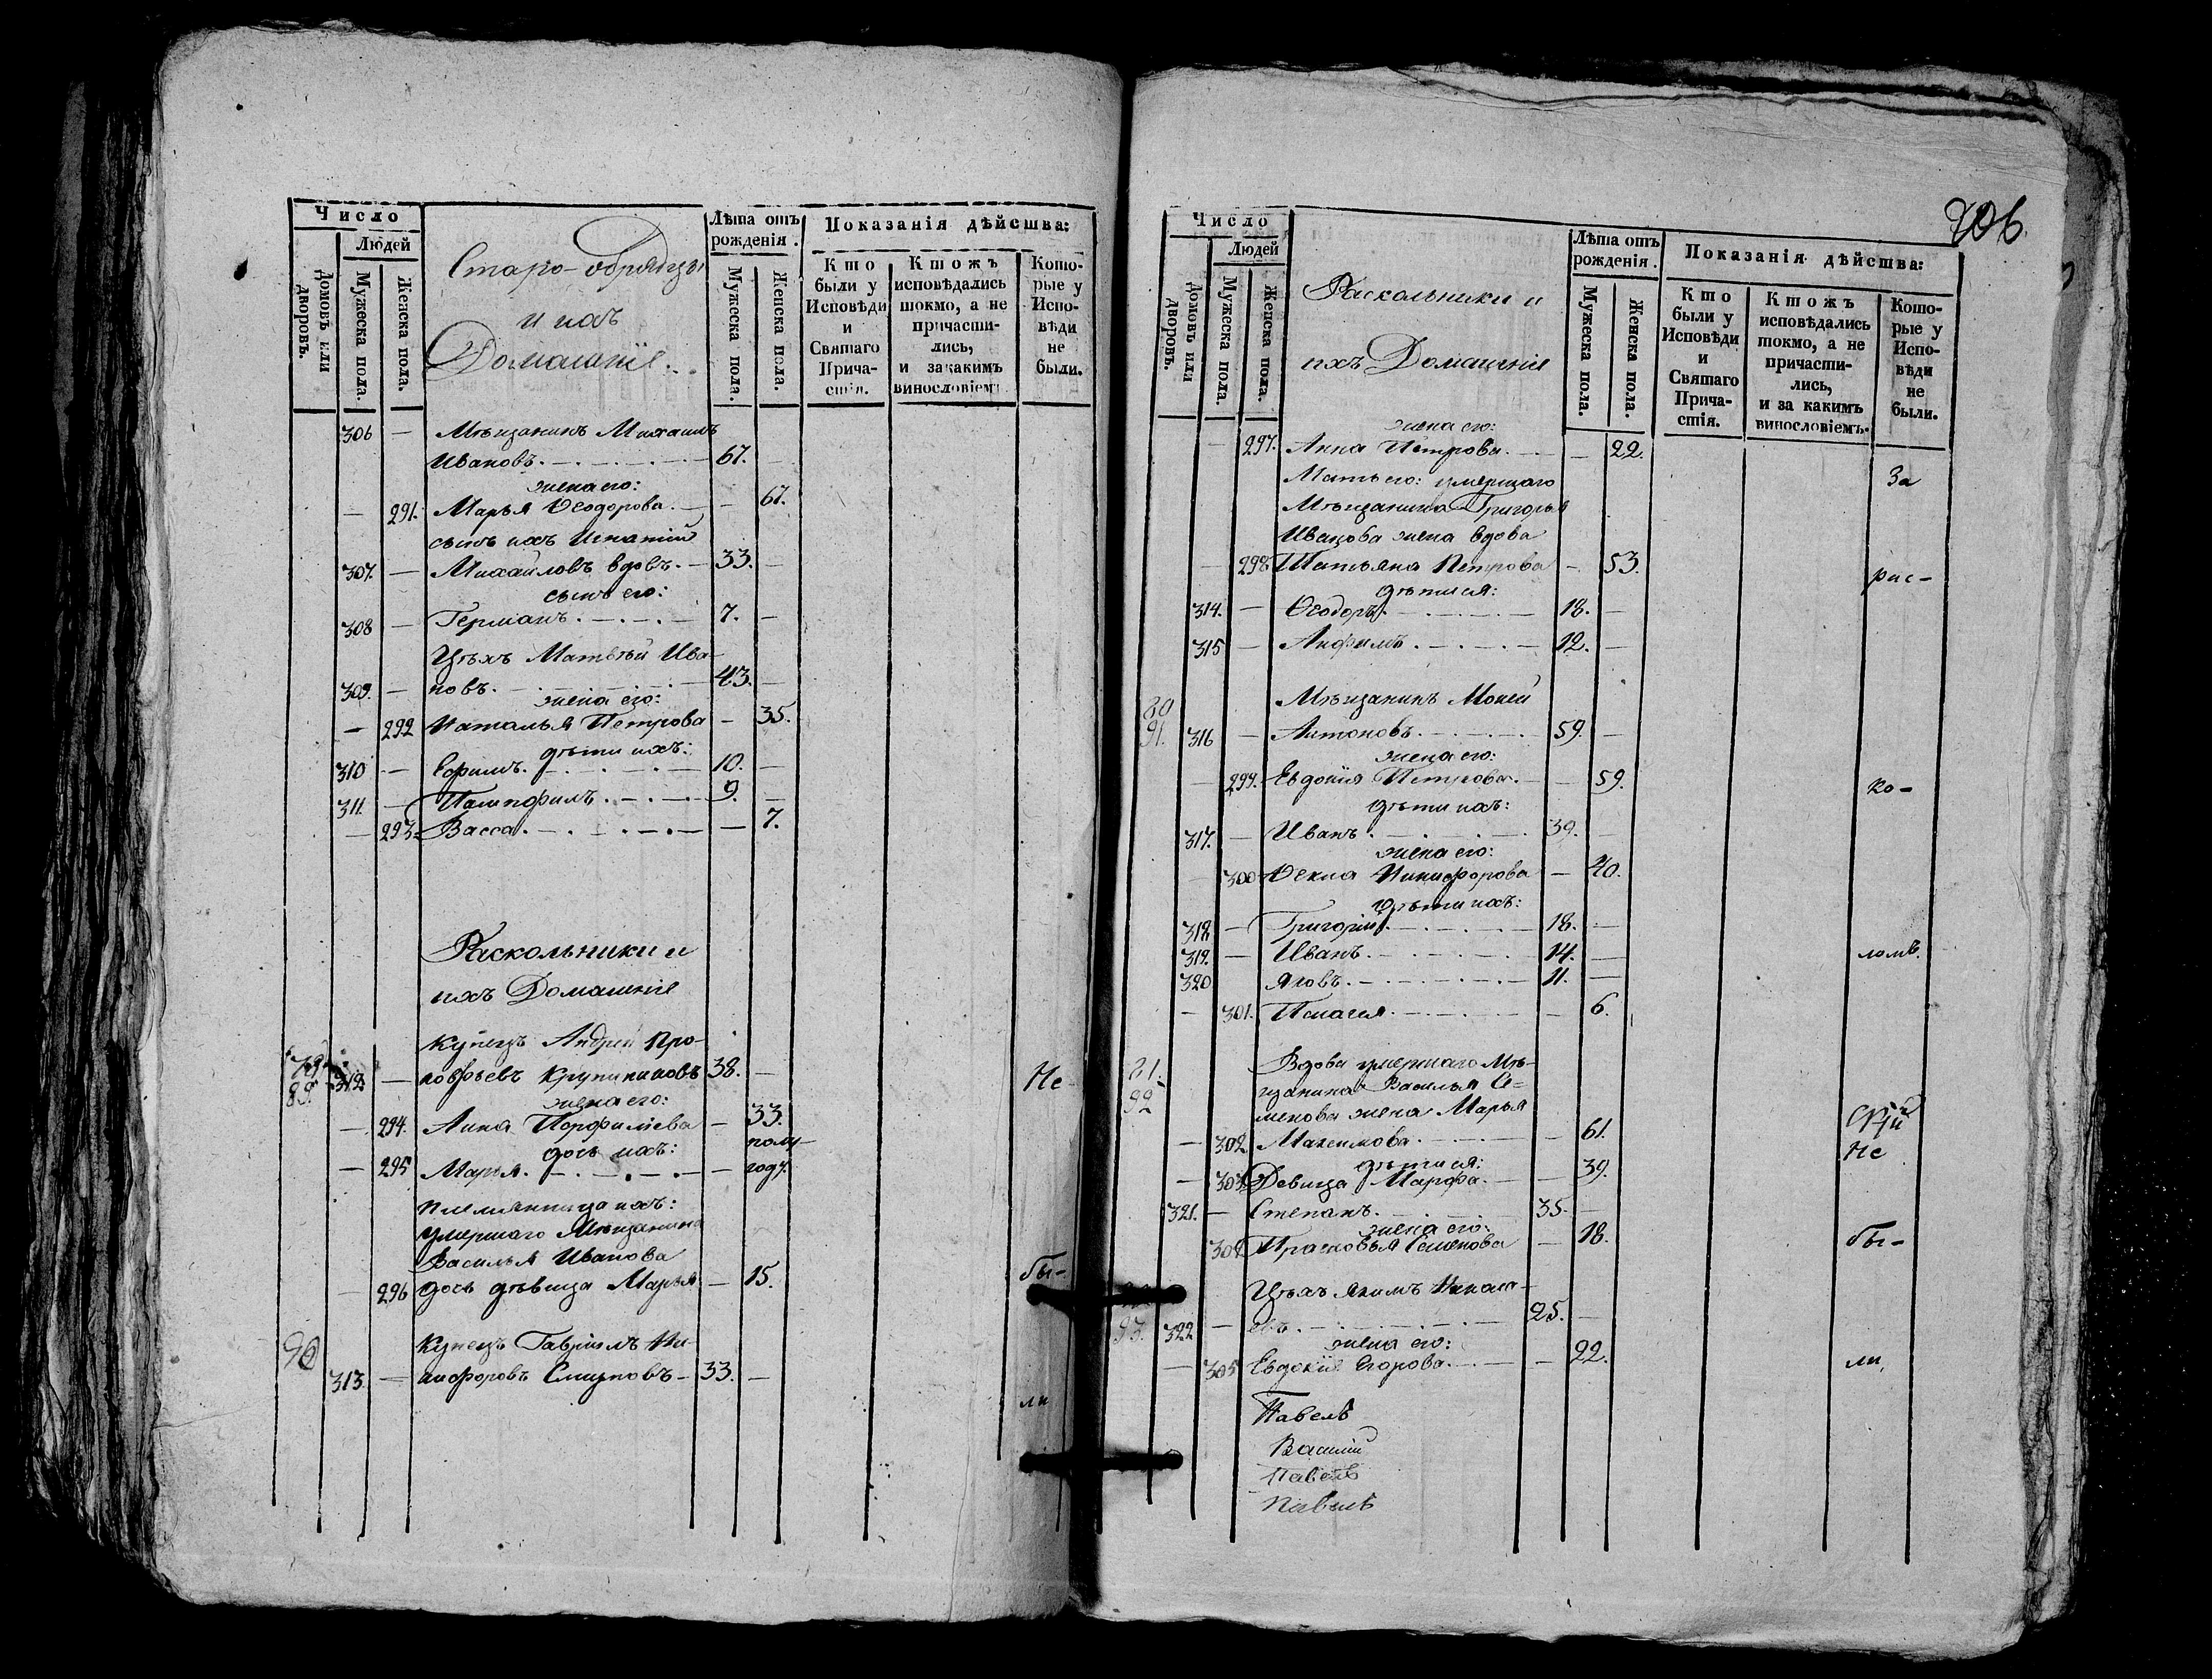 Число
Людей
Домовъ или дворовъ.
Мужеска пола.
Женска пола.
Старо-обрядцы
и ихъ
Домашніе.
Лѣта отъ рожденія.
Мужеска пола.
Женска пола.
Показанія дѣйства:
Кто были у Исповѣди и Святаго Причастія.
Ктожъ исповѣдались токмо, а не причастились, и за какимъ винословіемъ.
Которые у Исповѣди не были.
306 — Мѣщанинъ Михаилъ
Ивановъ. 67. —
жена его:
— 291. Марья Ѳеодорова. — 67.
сынъ ихъ Игнатій
307. — Михайловъ вдовъ. — 33. —
сынъ его:
308 — Германъ. 7. —
Цѣхъ Матвѣй Ива-
309. — новъ. 43. —
жена его:
— 292 Наталья Петрова — 35.
дѣти ихъ:
310 — Ефимъ. 10. —
311. — Памфилъ. 9. —
— 293. Васса. — 7.
Раскольники и
ихъ Домашніе
Купецъ Андрей Про-
89. 312 — кофьевъ Крупениковъ 38. — Не
жена его:
— 294. Анна Порфиліева — 33.
дочь ихъ: полу-
— 295 Марья. — году.
племянница ихъ:
умершаго Мѣщанина
Василья Иванова
296 дочь дѣвица Марья — 15. бы-
90 Купецъ Гавріилъ Ни-
313. — кифоровъ Смирновъ — 33. —
ли
206
Число
Людей
Домовъ или дворовъ.
Мужеска пола.
Женска пола.
Раскольники и
ихъ Домашніе
Лѣта отъ рожденія.
Мужеска пола.
Женска пола.
Показанія дѣйства:
Кто были у Исповѣди и Святаго Причастія.
Ктожъ исповѣдались токмо, а не причастились, и за какимъ винословіемъ.
Которые у Исповѣди не были.
жена его:
— 297. Анна Петрова. — 22.
Мать его: умершаго За
Мѣщанина Григорья
Иванова жена вдова
— 298 Татьяна Петрова — 53. рас-
дѣти ея:
314. — Ѳеодоръ. 18. —
315 — Анфимъ. 12. —
Мѣщанинъ Мокей
91. 316 — Антоновъ. 59. —
жена его:
— 299. Евдокія Петрова. — 59. ко-
дѣти ихъ:
317. — Иванъ. 39. —
жена его:
300 Ѳекла Никифорова — 40.
дѣти ихъ:
318 — Григорій. 18. —
319. — Иванъ. 14. — ломъ.
320 Яковъ. 11. —
— 301. Пелагея. — 6.
Вдова умершаго Мѣ-
92 щанина Василья Се-
менова жена Марья
— 302 Максимова. — 61. Не
дѣти ея:
— 303 Девица Марфа. — 39.
321. — Степанъ. 35. —
жена его:
304 Прасковья Семенова — 18. бы-
Цѣхъ Якимъ
93. 322 — евъ. 25. —
жена его:
— 305 Евдокія Егорова. — 22. ли,
Павелъ
Василій
Павелъ
Павелъ